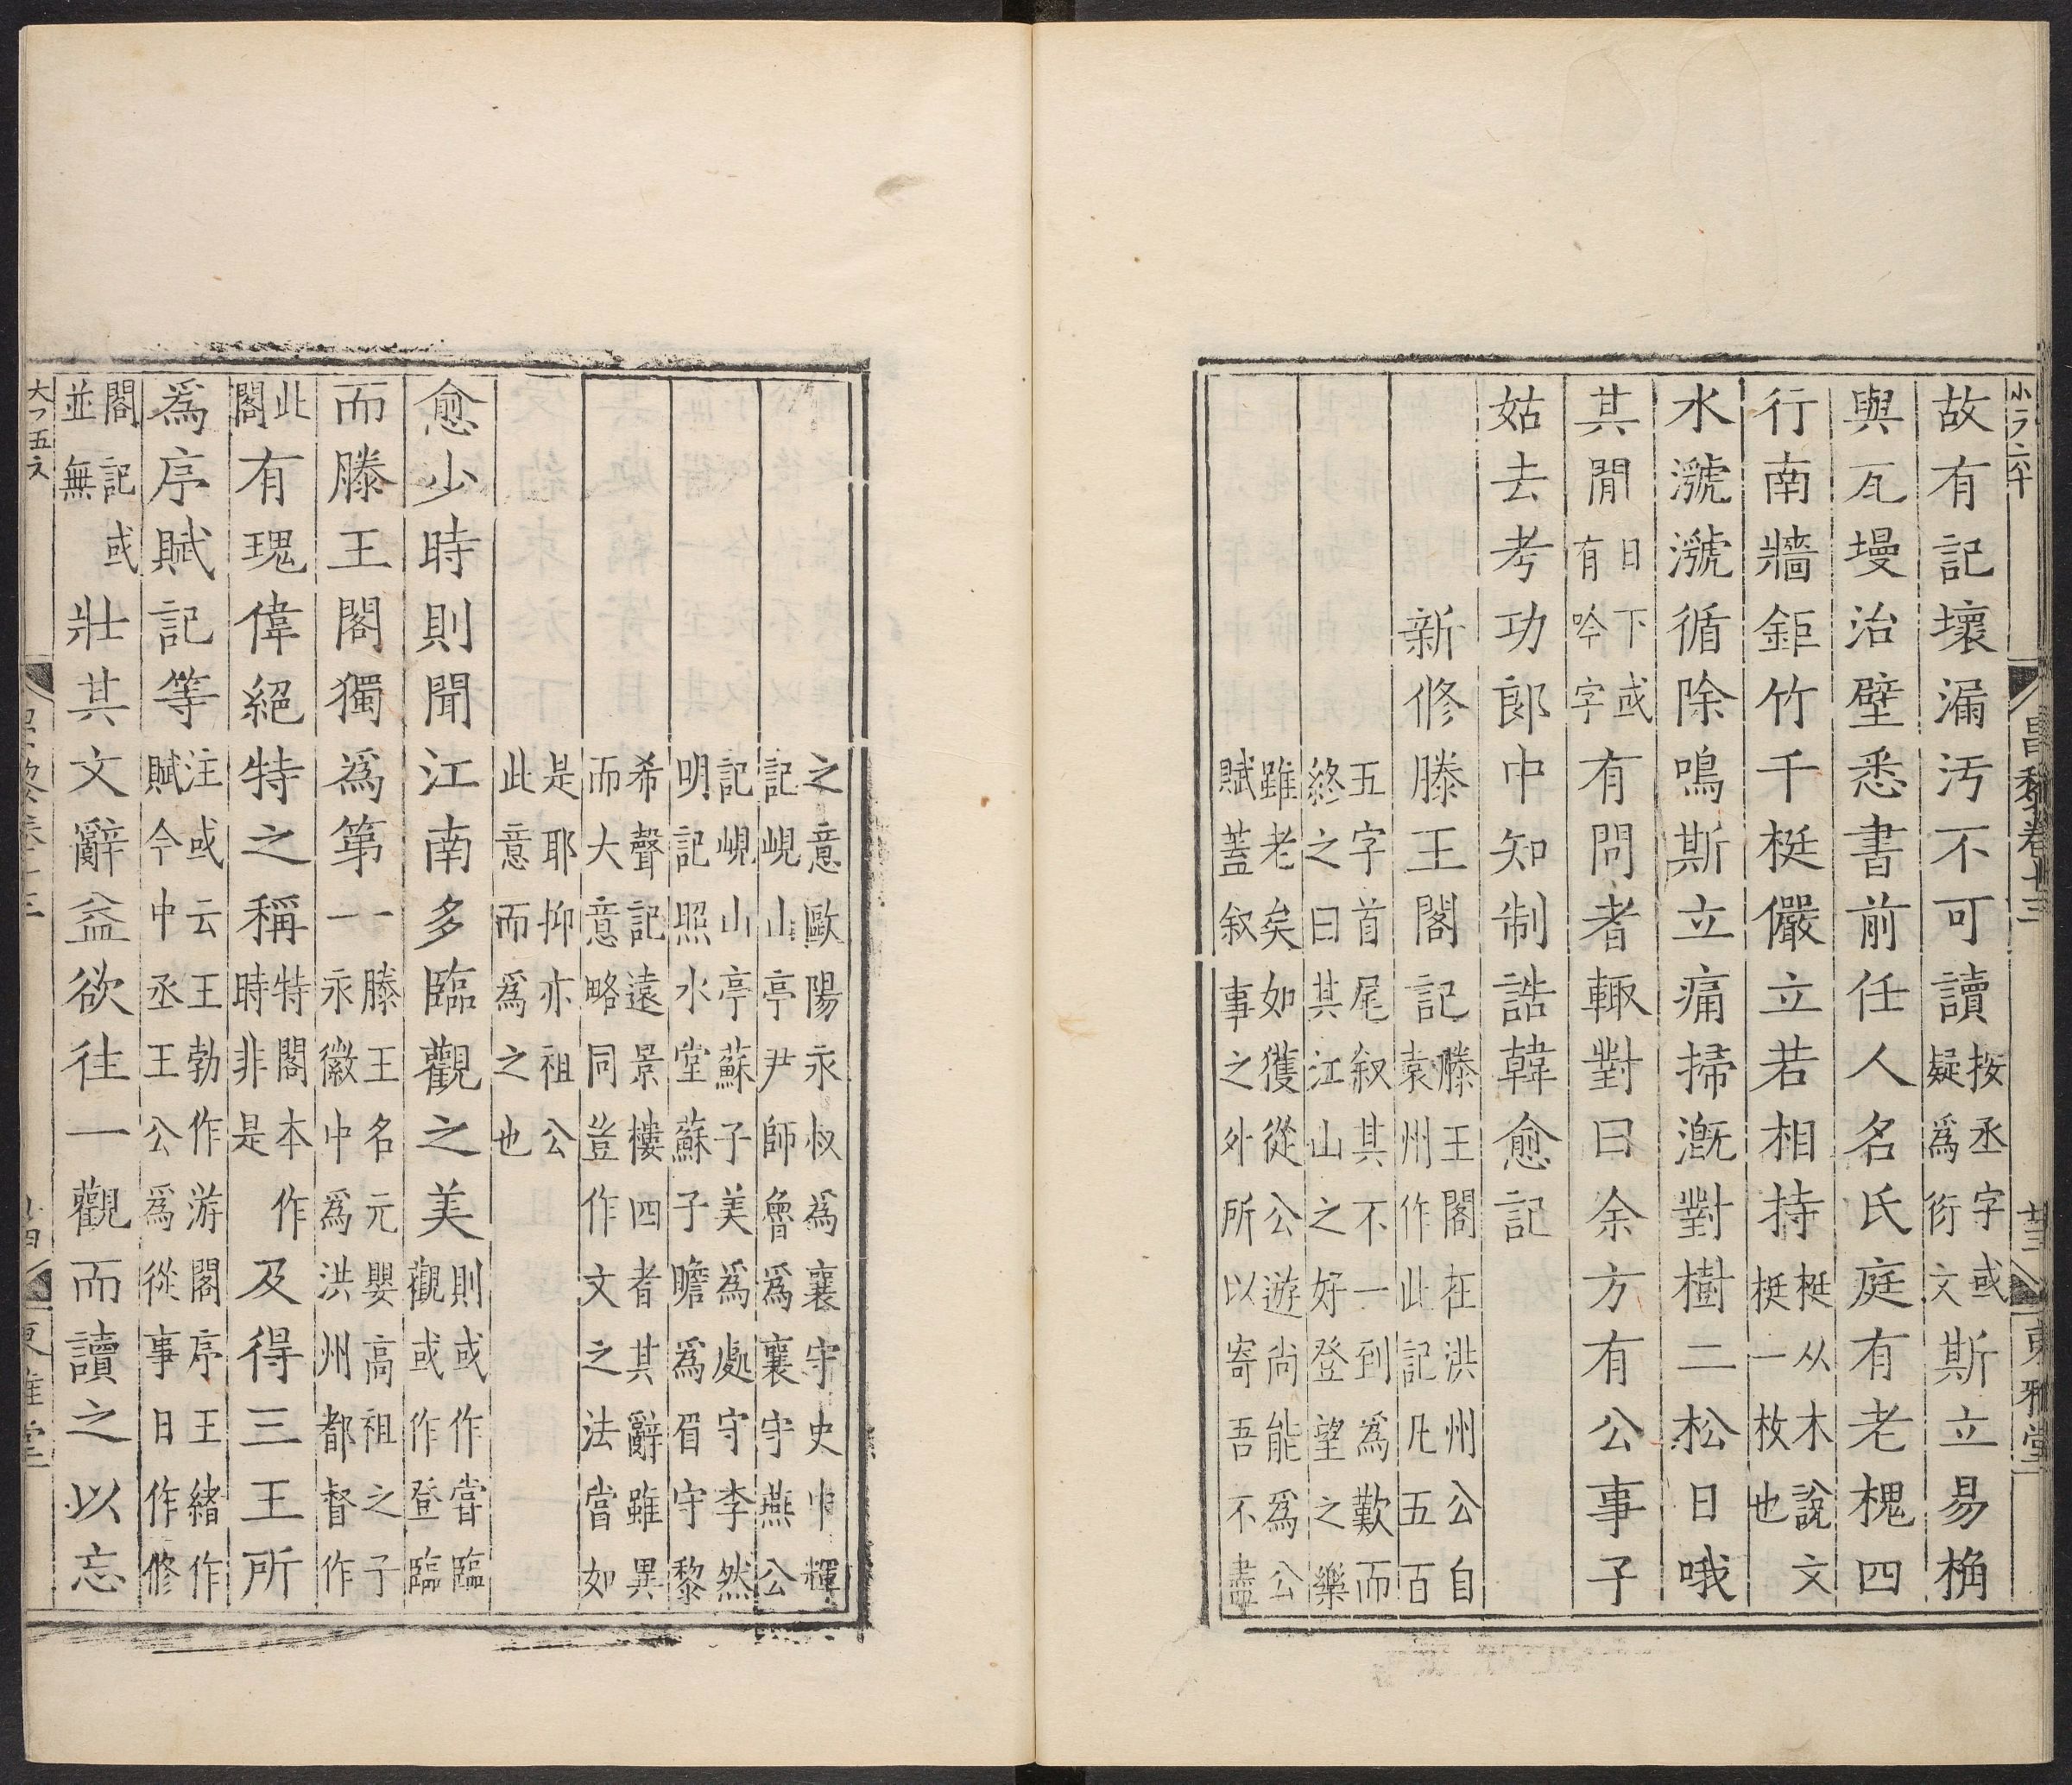 昌黎卷十三 廿三 東雅堂
故有記壞漏汚不可讀按丞字或疑爲衍文斯立易桷
與瓦墁治壁悉書前任人名氏庭有老槐四
行南牆鉅竹千梃儼立若相持梃从木說文梃一枚也
水㶁㶁循除鳴斯立痛掃漑對樹二松日哦
其閒日下或有吟字有問者輒對曰余方有公事子
姑去考功郎中知制誥韓愈記
新修滕王閣記滕王閣在洪州公自袁州作此記凡五百
五字首尾叙其不一到爲歎而終之曰其江山之好登望之樂
雖老矣如獲從公遊尚能爲公賦蓋叙事之外所以寄吾不盡
之意歐陽永叔爲襄守史中輝記峴山亭尹師魯爲襄守燕公
記峴山亭蘇子美爲處守李然明記照水堂蘇子瞻爲眉守黎
希聲記遠景樓四者其辭雖異而大意略同豈作文之法當如
是耶抑亦祖公此意而爲之也
愈少時則聞江南多臨觀之美則或作嘗臨觀或作登臨
而滕王閣獨爲第一滕王名元嬰高祖之子永徽中爲洪州都督作
此閣有瑰偉絕特之稱特閣本作時非是及得三王所
爲序賦記等注或云王勃作游閣序王緒作賦今中丞王公爲從事日作修
閣記或並無壯其文辭益欲往一觀而讀之以忘